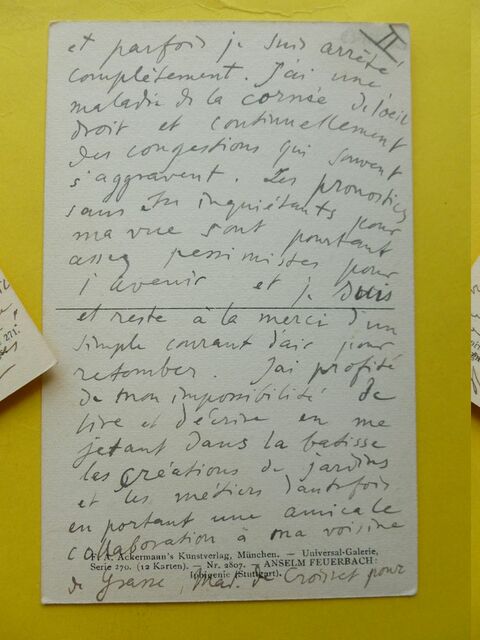 II
et parfois je suis arrêté
complètement. J'ai une
maladie de la cornée de l'oeil
droit et continuellement
des congestions qui souvent
s'aggravent. Les pronostics
sans être inquiétants pour
ma vue sont pourtant
assez pessimistes pour
l'avenir et je suis
et reste à la merci d'un
simple courant d'air pour
retomber. J'ai profité
de mon impossibilité de
lire et d'écrire en me
jetant dans la batisse
les créations de jardins
et les métiers d'autrefois
en portant une amicale
collaboration à ma voisine
F. A. Ackermann's Kunstverlag, München. — Universal-Galerie,
Serie 270. (12 Karten). — Nr. 2807. — ANSELM FEUERBACH:
Iphigenie (Stuttgart).
de Grasse, Mad. de Croisset pour
271.